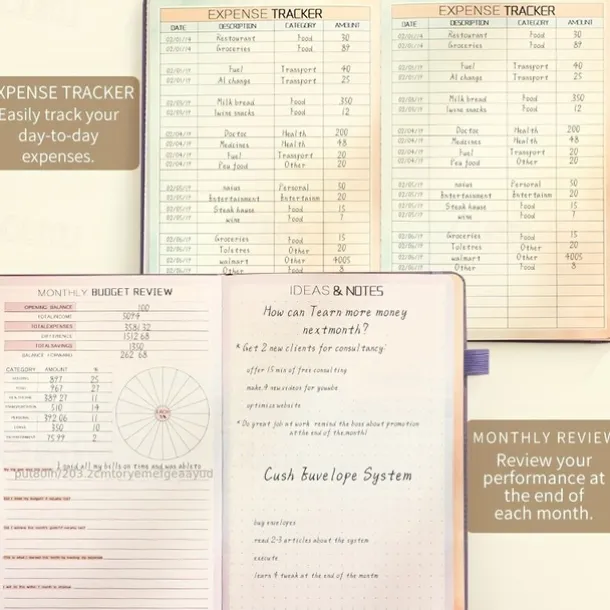 EXPENSE TRACKER
DATE DESCRIPTION CATEGORY AMOUNT
02/01/19 Restourant Food 30
Groceries Food 89
Fuel Transport 40
Al change Transport 25
Milk bread Food 350
Iwine snacks Food 12
02/04/19 Doctoc Health 200
02/04/19 Medicines Health 48
02/04/19 Fuel Transport 20
02/04/19 Peu food Other 20
02/05/19 naius Personal 50
02/05/19 Entertainment Entertainm 20
02/05/19 Steak house Food 15
02/05/19 wine Food 7
02/06/19 Groceries Food 15
02/06/19 Toletres Other 20
02/06/19 walmart Other 4005
02/06/19 Other Food 8
EXPENSE TRACKER
DATE DESCRIPTION CATEGORY AMOUNT
Restourant Food 30
Groceries Food 89
Fuel Transport 40
Al change Transport 25
Milk bread Food 350
Iwine snacks Food 12
02/04/19 Doctoc Health 200
02/04/19 Medicines Health 48
02/04/19 Fuel Transport 20
02/04/19 Peu food Other 20
02/05/19 naius Personal 50
02/05/19 Entertainment Entertainm 20
02/05/19 Steak house Food 15
02/05/19 wine Food 7
02/06/19 Groceries Food 15
02/06/19 Toletres Other 20
02/06/19 walmart Other 4005
02/06/19 Other Food 8
XPENSE TRACKER
Easily track your
day-to-day
expenses.
MONTHLY BUDGET REVIEW
OPENING BALANCE 100
TOTALINCOME 5094
TOTALEXPENSES 3581 32
DIFFERENCE 1512 68
TOTALSAVINGS 1350
BALANCE 262 68
CATEGORY AMOUNT %
897 25
967 27
389 27 11
510 14
392 06 11
350 10
75 99 2
I paid all my bills on time and was able to
IDEAS & NOTES
How can Tearn more money
nextmonth?
* Get 2 new clients for consultancy:
offer 15 min of free consulting
make 4 new uideos for youube
optimise website
* Do great job at work remind the boss about promotion
at the end of the month!
Cush Euvelope System
buy envelopes
read 2-3 articles about the system
execute
learn 4 tweak at the end of the montm
MONTHLY REVIEW
Review your
performance at
the end of
each month.